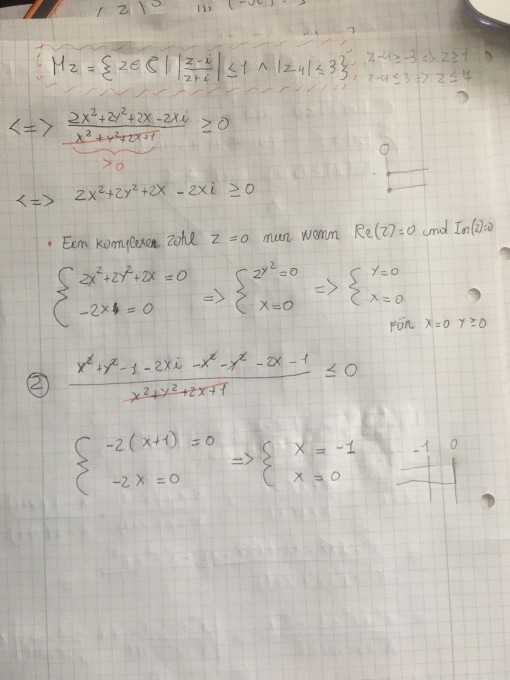 M₂ = {z∈ℂ | |z-i/z+i| ≤ 1 ∧ |z-4| ≤ 3}
z-4≥-3 => z≥1
z-4≤3 => z≤
<=> 2x²+2y²+2x-2xi / x²+y²+2x+1 ≥ 0
>0
0
<=> 2x²+2y²+2x - 2xi ≥ 0
• Een komplexen zohl z = 0 nun wenn Re(z)=0 und Im(z)=0
{ 2x²+2y²+2x = 0 => { 2y² = 0 => { y=0
-2x = 0 x=0 x=0
Für x=0 y≥0
② x²+y²-1-2xi -x²-y² -2x -1 / x²+y²+2x+1 ≤ 0
{ -2(x+1) = 0 => { x = -1
-2x = 0 x = 0
-1 0